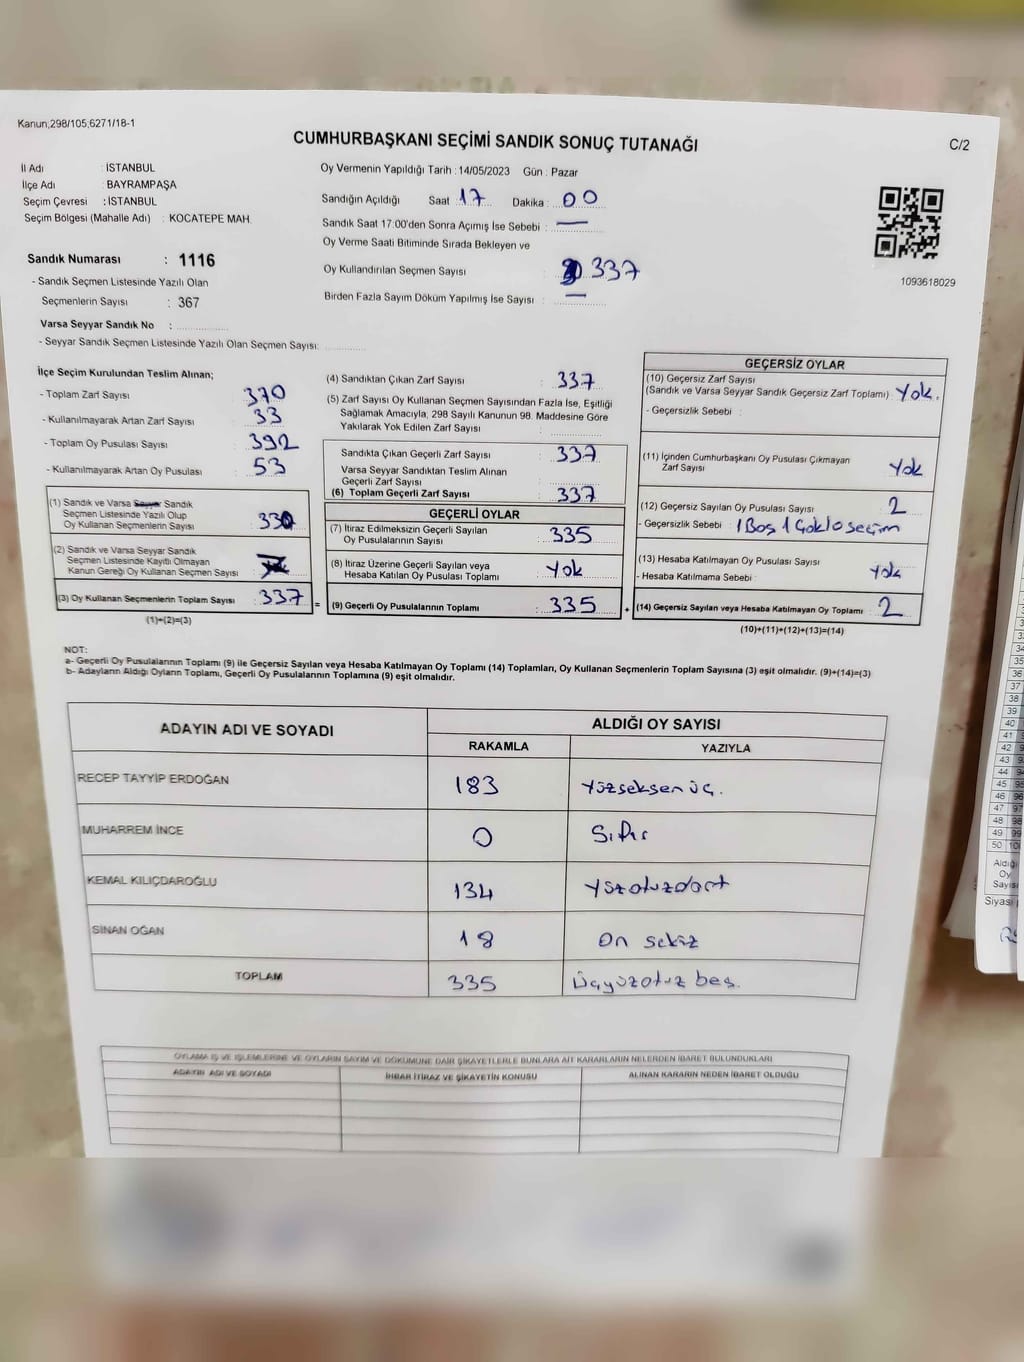 Kanun;298/105,6271/18-1
CUMHURBAŞKANI SEÇİMİ SANDIK SONUÇ TUTANAĞI
C/2
İl Adı : İSTANBUL
İlçe Adı : BAYRAMPAŞA
Seçim Çevresi : İSTANBUL
Seçim Bölgesi (Mahalle Adı) : KOCATEPE MAH.
Sandık Numarası : 1116
- Sandık Seçmen Listesinde Yazılı Olan
Seçmenlerin Sayısı : 367
Varsa Seyyar Sandık No :
- Seyyar Sandık Seçmen Listesinde Yazılı Olan Seçmen Sayısı:
Oy Vermenin Yapıldığı Tarih : 14/05/2023 Gün : Pazar
Sandığın Açıldığı Saat 17 Dakika : 00
Sandık Saat 17:00'den Sonra Açımış İse Sebebi : —
Oy Verme Saati Bitiminde Sırada Bekleyen ve
Oy Kullandırılan Seçmen Sayısı : 337
Birden Fazla Sayım Döküm Yapılmış İse Sayısı : —
1093618029
İlçe Seçim Kurulundan Teslim Alınan;
- Toplam Zarf Sayısı : 370
- Kullanılmayarak Artan Zarf Sayısı : 33
- Toplam Oy Pusulası Sayısı : 392
- Kullanılmayarak Artan Oy Pusulası : 53
(1) Sandık ve Varsa Seyyar Sandık
Seçmen Listesinde Yazılı Olup
Oy Kullanan Seçmenlerin Sayısı :
(2) Sandık ve Varsa Seyyar Sandık
Seçmen Listesinde Kayıtlı Olmayan
Kanun Gereği Oy Kullanan Seçmen Sayısı :
(3) Oy Kullanan Seçmenlerin Toplam Sayısı : 337 =
(1)+(2)=(3)
(4) Sandıktan Çıkan Zarf Sayısı : 337
(5) Zarf Sayısı Oy Kullanan Seçmen Sayısından Fazla İse, Eşitliği
Sağlamak Amacıyla, 298 Sayılı Kanunun 98. Maddesine Göre
Yakılarak Yok Edilen Zarf Sayısı :
Sandıkta Çıkan Geçerli Zarf Sayısı : 337
Varsa Seyyar Sandıktan Teslim Alınan
Geçerli Zarf Sayısı :
(6) Toplam Geçerli Zarf Sayısı : 337
GEÇERLİ OYLAR
(7) İtiraz Edilmeksizin Geçerli Sayılan
Oy Pusulalarının Sayısı : 335
(8) İtiraz Üzerine Geçerli Sayılan veya
Hesaba Katılan Oy Pusulası Toplamı : Yok
(9) Geçerli Oy Pusulalarının Toplamı : 335 +
GEÇERSİZ OYLAR
(10) Geçersiz Zarf Sayısı
(Sandık ve Varsa Seyyar Sandık Geçersiz Zarf Toplamı) : Yok.
- Geçersizlik Sebebi :
(11) İçinden Cumhurbaşkanı Oy Pusulası Çıkmayan
Zarf Sayısı : Yok
(12) Geçersiz Sayılan Oy Pusulası Sayısı : 2
- Geçersizlik Sebebi : 1 Boş 1 Çoklo seçim
(13) Hesaba Katılmayan Oy Pusulası Sayısı : Yok
- Hesaba Katılmama Sebebi :
(14) Geçersiz Sayılan veya Hesaba Katılmayan Oy Toplamı : 2
(10)+(11)+(12)+(13)=(14)
NOT:
a- Geçerli Oy Pusulalarının Toplamı (9) ile Geçersiz Sayılan veya Hesaba Katılmayan Oy Toplamı (14) Toplamları, Oy Kullanan Seçmenlerin Toplam Sayısına (3) eşit olmalıdır. (9)+(14)=(3)
b- Adayların Aldığı Oyların Toplamı, Geçerli Oy Pusulalarının Toplamına (9) eşit olmalıdır.
ADAYIN ADI VE SOYADI
ALDIĞI OY SAYISI
RAKAMLA YAZIYLA
RECEP TAYYİP ERDOĞAN 183 Yüzseksen üç.
MUHARREM İNCE 0 Sıfır
KEMAL KILIÇDAROĞLU 134 Yüzotuzdört
SİNAN OĞAN 18 On sekiz
TOPLAM 335 Üçyüzotuz beş.
OYLAMA İŞ VE İŞLEMLERİNE VE OYLARIN SAYIM VE DÖKÜMÜNE DAİR ŞİKAYETLERLE BUNLARA AİT KARARLARIN NELERDEN İBARET BULUNDUKLARI
ADAYIN ADI VE SOYADI İHBAR İTİRAZ VE ŞİKAYETİN KONUSU ALINAN KARARIN NEDEN İBARET OLDUĞU
35
36
37
38
39
40
41
42
43
44
45 95
46 96
47 97
48 98
49 99
50
Aldığı
Oy
Sayısı